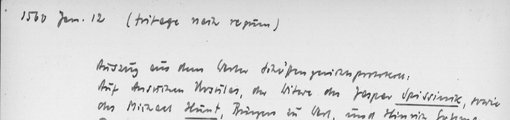 1560 Jan. 12 (tritage nach regum)
Auszug aus dem Werler Schöffengerichtsprotokoll:
Auf Ansuchen der Witwe des Jasper Spissinck, sowie
des Michael Hunt, Bürgers zu Werl, und Hinrich